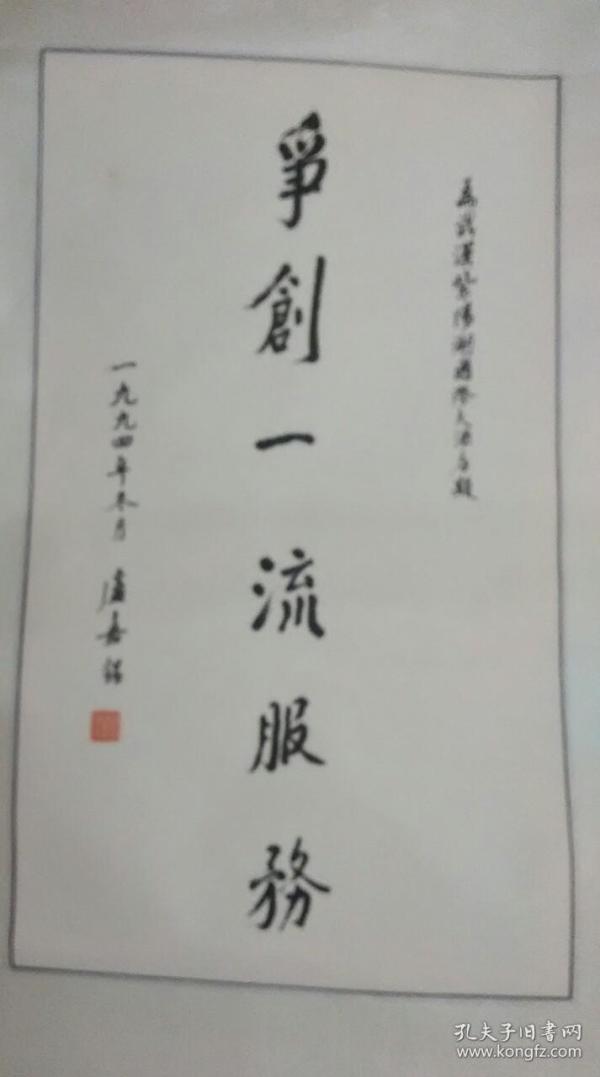 為武漢紫陽湖國際大酒店題
爭創一流服務
一九九四年冬月 盧嘉錫
孔夫子旧书网
www.kongfz.com